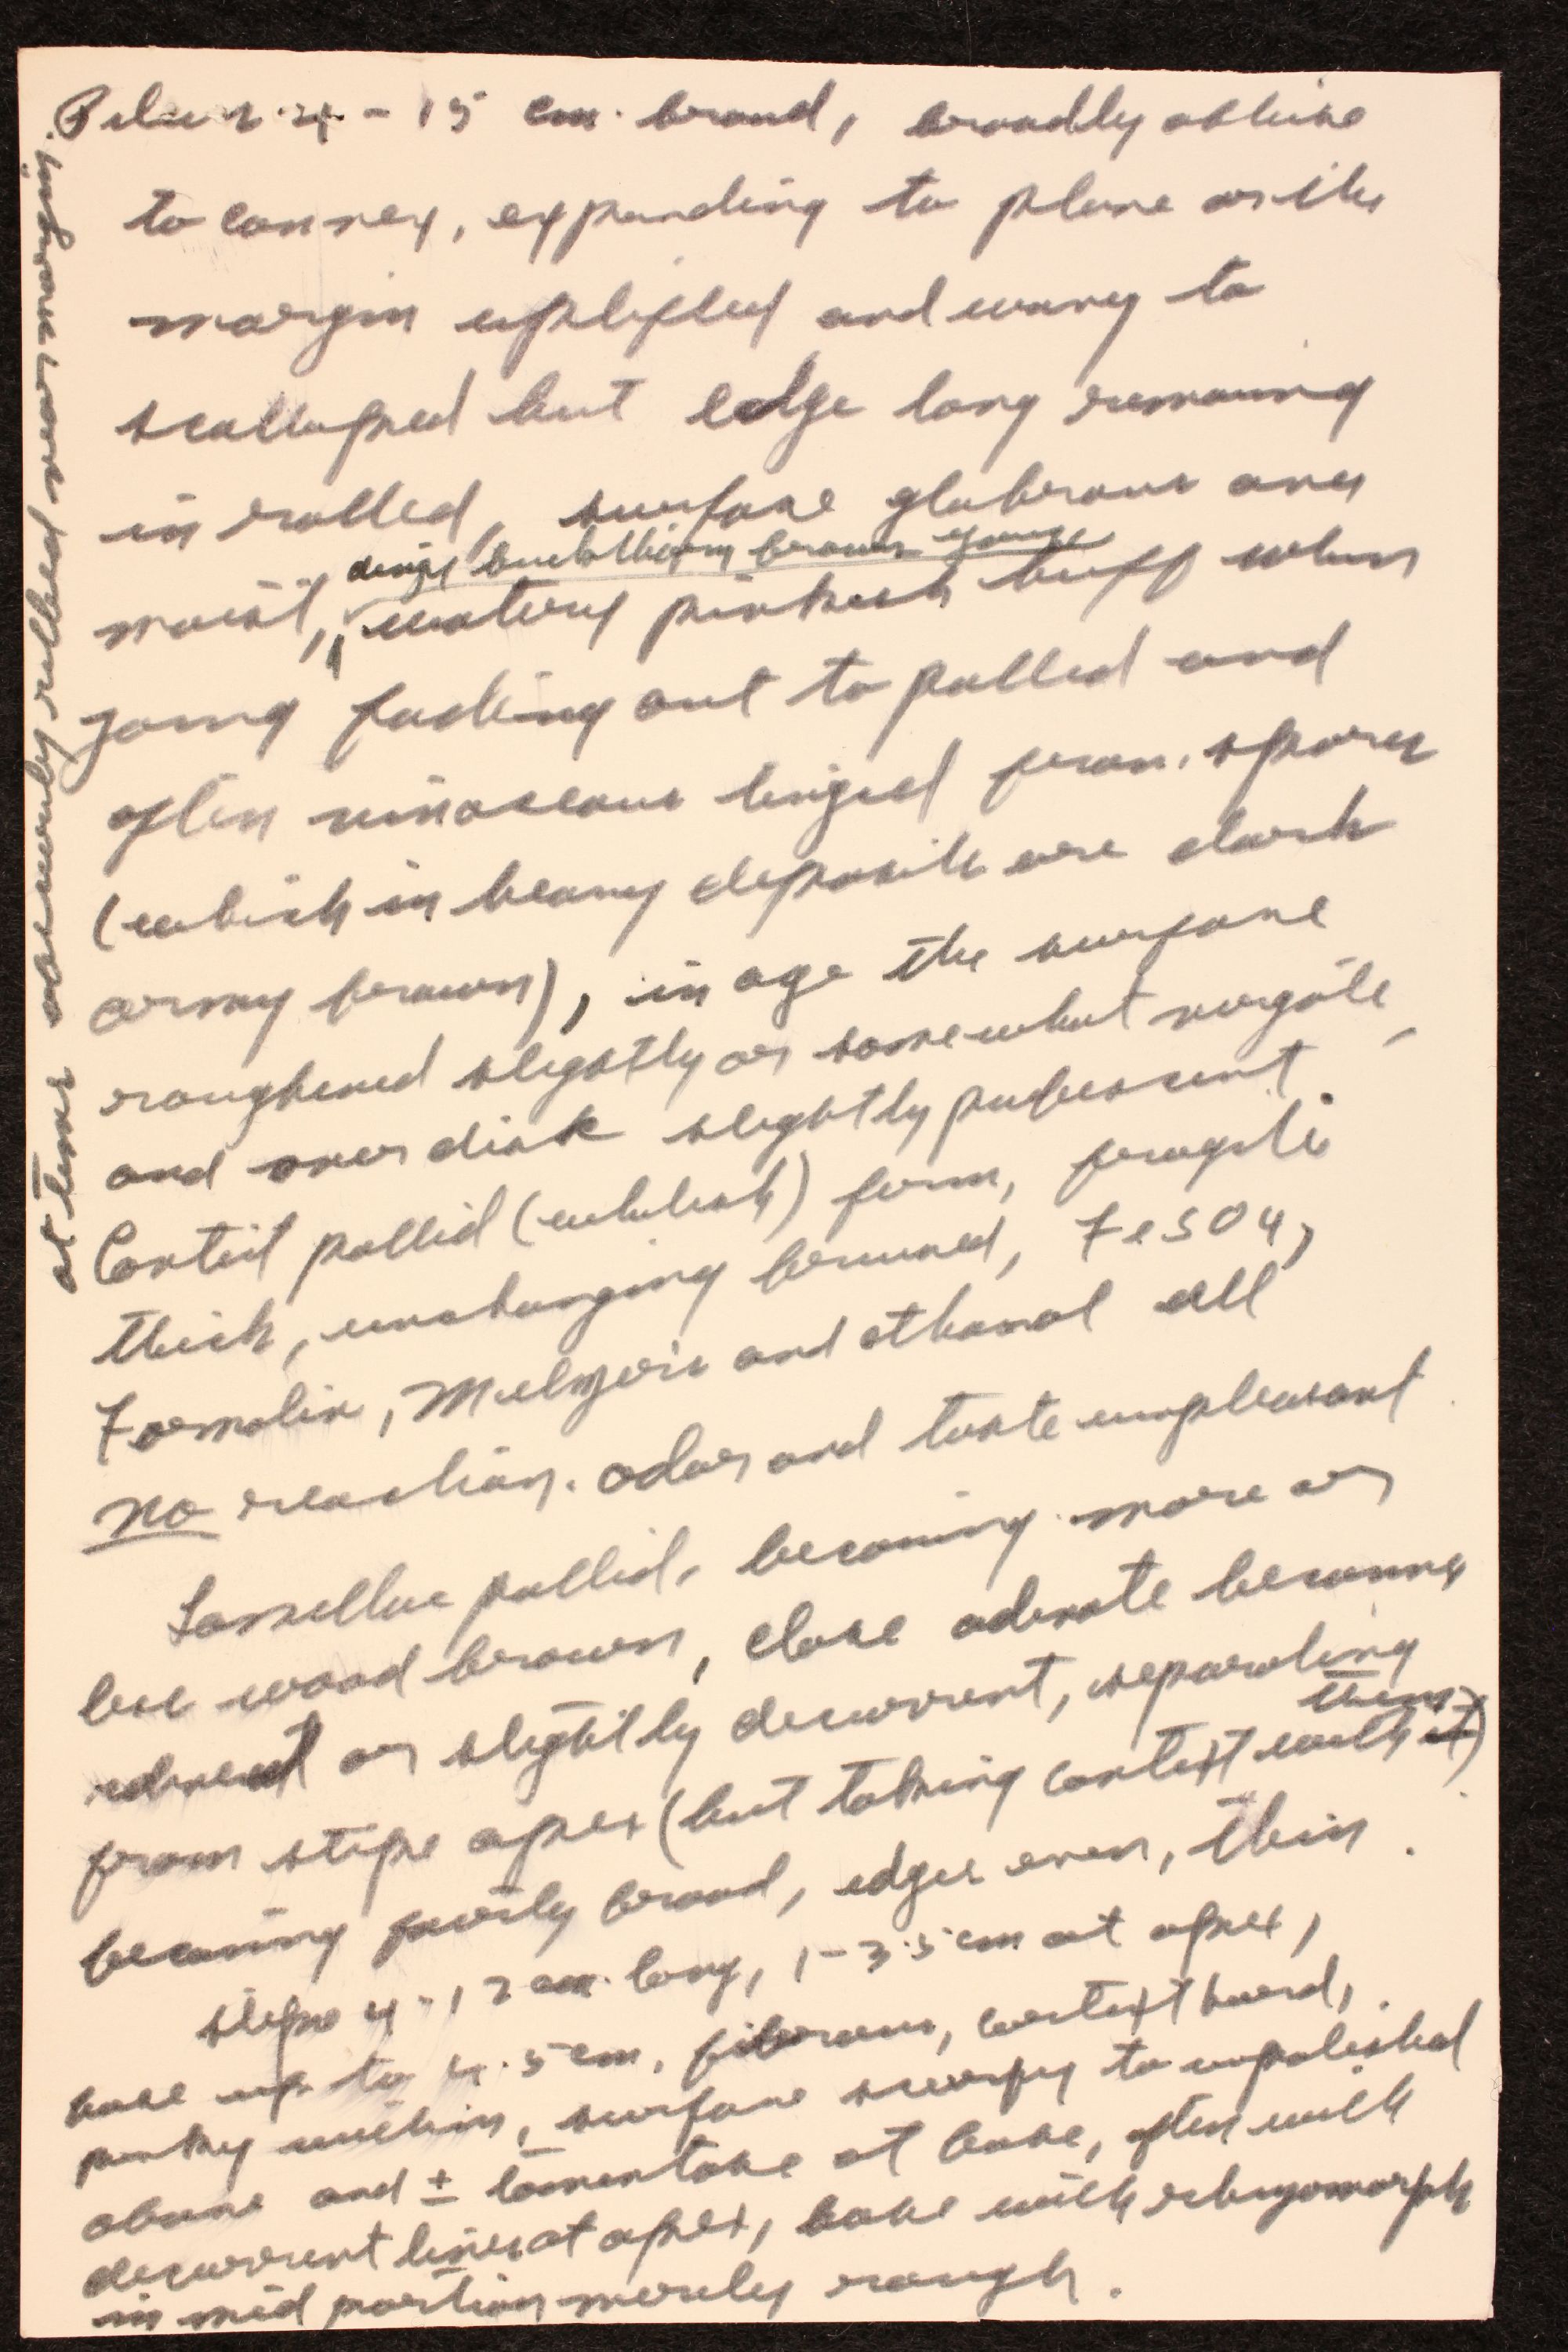 Pileus 4 - 15 cm. broad, broadly obtuse
to convex, expanding to plane or the
margin uplifted and wavy to
scalloped but edge long remaining
in rolled, surface glabrous and
dingy buckthorn brown young
moist, watery pinkish buff when
young fading out to pallid and
often vinaceous tinged from spores
(which in heavy deposits are dark
army brown), in age the surface
roughened slightly or somewhat rugose,
and over disk slightly pubescent.
Context pallid (whitish) firm, fragile
thick, unchanging bruised, FeSO4,
Formalin, Melzer's and ethanol all
no reaction. odor and taste unpleasant
Lamellae pallid, becoming more or
less wood brown, close adnate becoming
adnexed or slightly decurrent, separating
from stipe apex (but taking context with it them)
becoming fairly broad, edges even, thin.
Stipe 4-12 cm. long, 1-3.5 cm at apex,
base up to 4.5 cm, fibrous, context hard,
punky within, surface scurfy to unpolished
above and ± tomentose at base, often with
decurrent lines at apex, base with rhizomorphs
in mid portion merely rough.
at times obscurely rilled near margin.